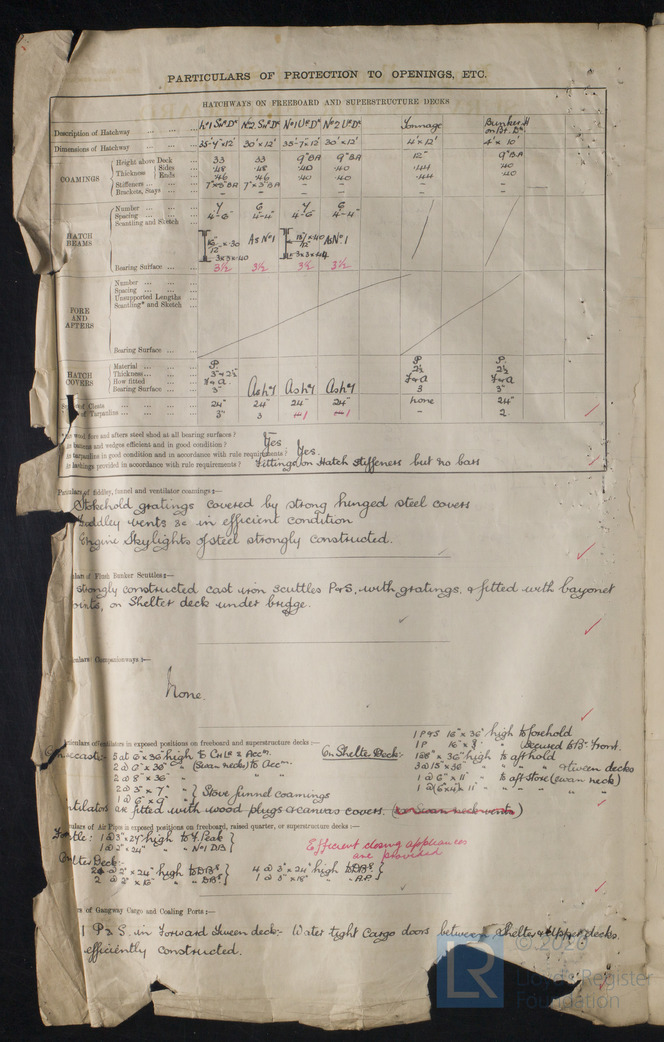 PARTICULARS OF PROTECTION TO OPENINGS, ETC.
HATCHWAYS ON FREEBOARD AND SUPERSTRUCTURE DECKS
Description of Hatchway No1 ShrDk No2 ShrDk No1 UrDk No2 UrDk Tonnage Bunker H on Br. Dk
Dimensions of Hatchway 30'×12' 30'×12' 4'×12' 4'×10'
COAMINGS
Height above Deck 33 33 9"BA 9"BA 12" 9"BA
Thickness Sides .48 .48 .40 .40 .44 .40
Ends .46 .46 .40 .40 .44 .40
Stiffeners 7"×3"BA 7"×3"BA – – – –
Brackets, Stays – – – – – –
HATCH BEAMS
Number 7 6 7 6
Spacing 4-6 4-4" 4-6 4-4"
Scantling and Sketch
As No1 As No1
Bearing Surface 3½ 3½ 3½ 3½
FORE AND AFTERS
Number
Spacing
Unsupported Lengths
Scantling* and Sketch
Bearing Surface
HATCH COVERS
Material P. P P.
Thickness 2½ 2½
How fitted F&A F&A F&A
Bearing Surface 3" 3 3"
of Cleats 24" 24" 24" 24" none 24"
of Tarpaulins 3" 3 – 2
wood fore and afters steel shod at all bearing surfaces?
battens and wedges efficient and in good condition? Yes
tarpaulins in good condition and in accordance with rule requirements? Yes.
lashings provided in accordance with rule requirements? Fittings on Hatch stiffeners but no bars
Particulars of fiddley, funnel and ventilator coamings:—
Stokehold gratings covered by strong hinged steel covers
Fiddley vents &c in efficient condition
Engine Skylights of steel strongly constructed.
of Flush Bunker Scuttles:—
strongly constructed cast iron scuttles P&S, with gratings, & fitted with bayonet
joints, on Shelter deck under bridge.
Companionways:—
None.
ventilators in exposed positions on freeboard and superstructure decks:—
5 at 6"×36" high to Crew Accn.
2 @ 6"×36" (swan necks) to Accn.
2 @ 8"×36" " "
2 @ 3"×7" } Stove funnel coamings
1 @ 6"×9" }
On Shelter Deck:
1 P&S 16"×36" high to forehold
1 P 16"×8' " secured to Br Front.
36" high to aft hold
" " " tween decks
1 @ 6"×11" " to aft store (swan neck)
Ventilators are fitted with wood plugs & canvas covers.
of Air Pipes in exposed positions on freeboard, raised quarter, or superstructure decks:—
1 @ 3"×24" high to F. Peak
1 @ 2"×24" " No1 DB
Efficient closing appliances
are provided
Shelter Deck:-
@ 2"×24" high to DBs
2 @ 2"×16" " DBs
4 @ 3"×24" high to DBs
1 @ 3"×18" " A.P.
of Gangway Cargo and Coaling Ports:—
1 P & S. in Forward Tween deck:- Water tight Cargo doors between Shelter & Upper decks.
efficiently constructed.
LR
© 2020
Lloyd's Register
Foundation